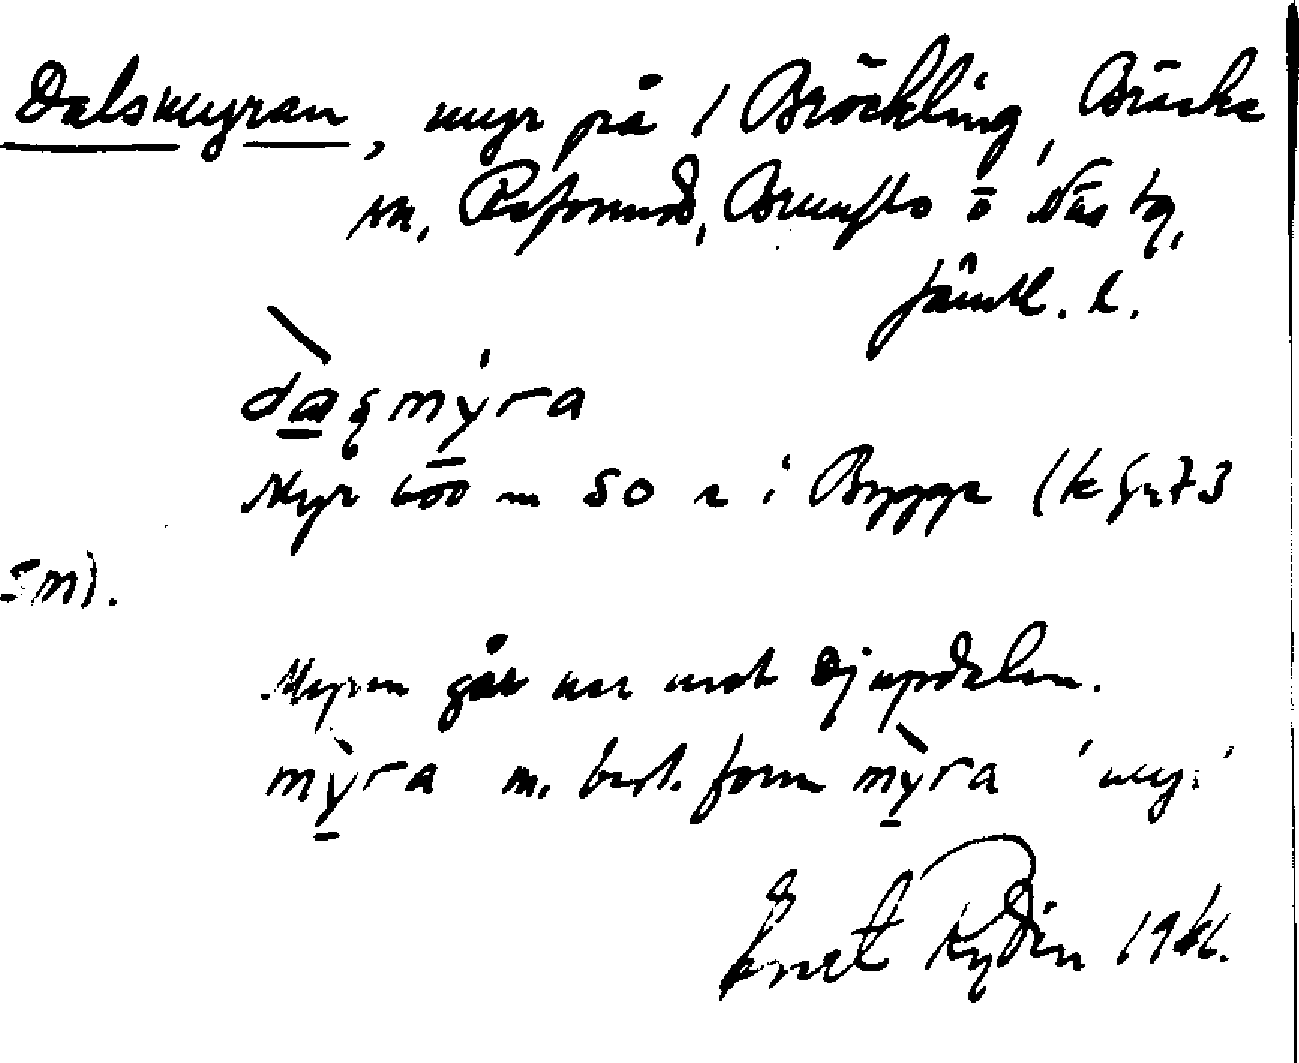 Dalsmyran, myr på 1 Bräckling, Bräcke
m, Refsund, Brunflo o Näs tg,
Jämtl. l.
daşmýra
Myr 600 m SO r i Bygge (k
5m).
Myren går ner mot Djupdalen.
mỳra m. best. form mỳra 'myr'
Ernst Rydin 1961.